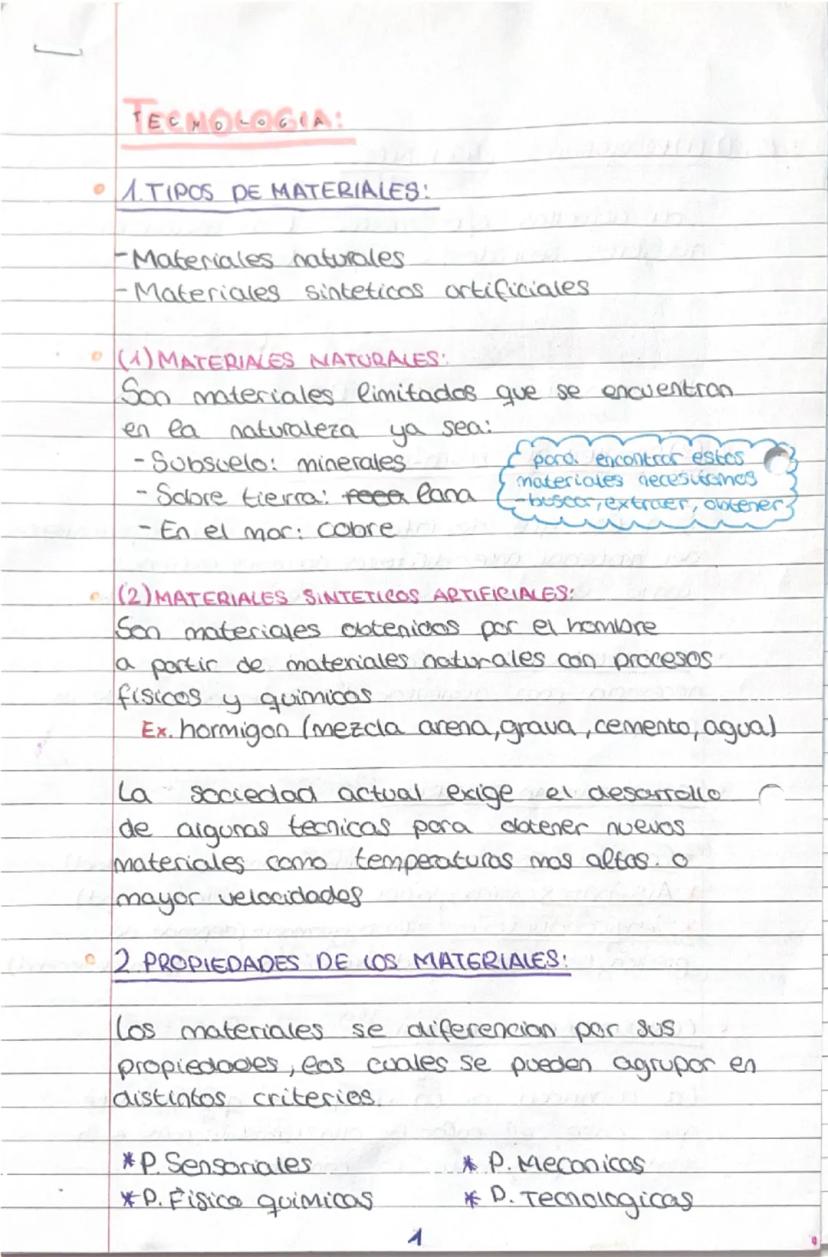 TECNOLOGIA:
1. TIPOS DE MATERIALES:
- Materiales naturales
- Materiales sinteticos artificiales
(1) MATERIALES NATURALES:
Son materiales limitados que se encuentran
en la naturaleza ya sea:
- Subsuelo: minerales
- Sobre tierra: lana
- En el mar: cobre
para encontrar estos
materiales necesitamos
- buscar, extraer, obtener
(2) MATERIALES SINTETICOS ARTIFICIALES:
Son materiales obtenidos por el hombre
a partir de materiales naturales con procesos
físicos y quimicos
Ex. hormigon (mezcla arena, grava, cemento, agua)
La sociedad actual exige el desarrollo
de algunas tecnicas para obtener nuevos
materiales como temperaturas mas altas o
mayor velocidades
2 PROPIEDADES DE LOS MATERIALES:
Los materiales se diferencian por sus
propiedades, las cuales se pueden agrupar en
distintos criteries.
* P. Sensoriales * P. Mecanicas
* P. Físico quimicas * P. Tecnologicas
1